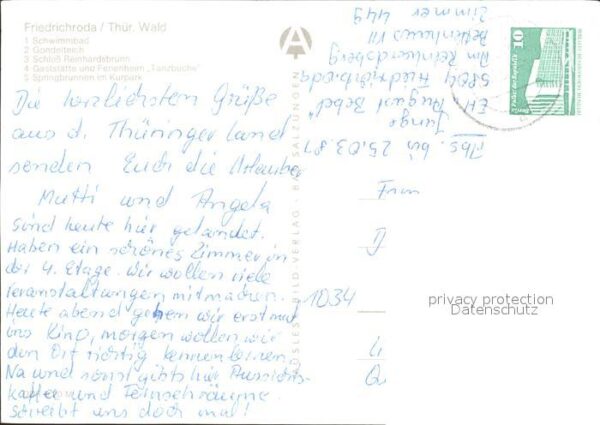 Friedrichroda / Thür. Wald
1 Schwimmbad
2 Gondelteich
3 Schloß Reinhardsbrunn
4 Gaststätte und Ferienheim „Tanzbuche"
5 Springbrunnen im Kurpark
Die herzlichsten Grüße
aus d. Thüringer Land
senden Euch die Urlauber
Mutti und Angela
Sind heute hier gelandet.
Haben ein schönes Zimmer in
der 4. Etage. Wir wollen viele
Veranstaltungen mitmachen.
Heute abend gehen wir erstmal
ins Kino, morgen wollen wir
den Ort richtig kennenlernen.
Na und sonst gibts hier Aussichts-
kaffee und Fernsehräume.
Schreibt uns doch mal!
Abs. bis 25.03.81
Junge
EH „August Bebel"
5804 Friedrichroda
Am Reinhardsberg
Bettenhaus III
Zimmer 449
AUSLESE-BILD-VERLAG · BAD SALZUNGEN
10
Fam
1034
privacy protection
Datenschutz